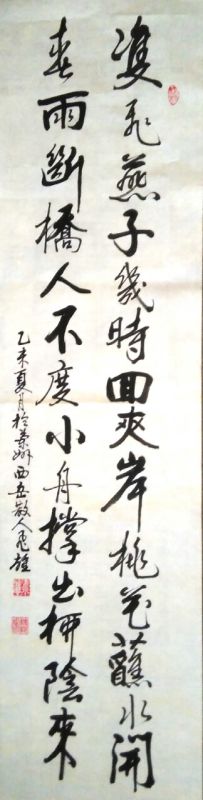 雙飛燕子幾時回夾岸桃花蘸水開
春雨斷橋人不度小舟撐出柳陰來
乙未夏月於蘭州西岳散人